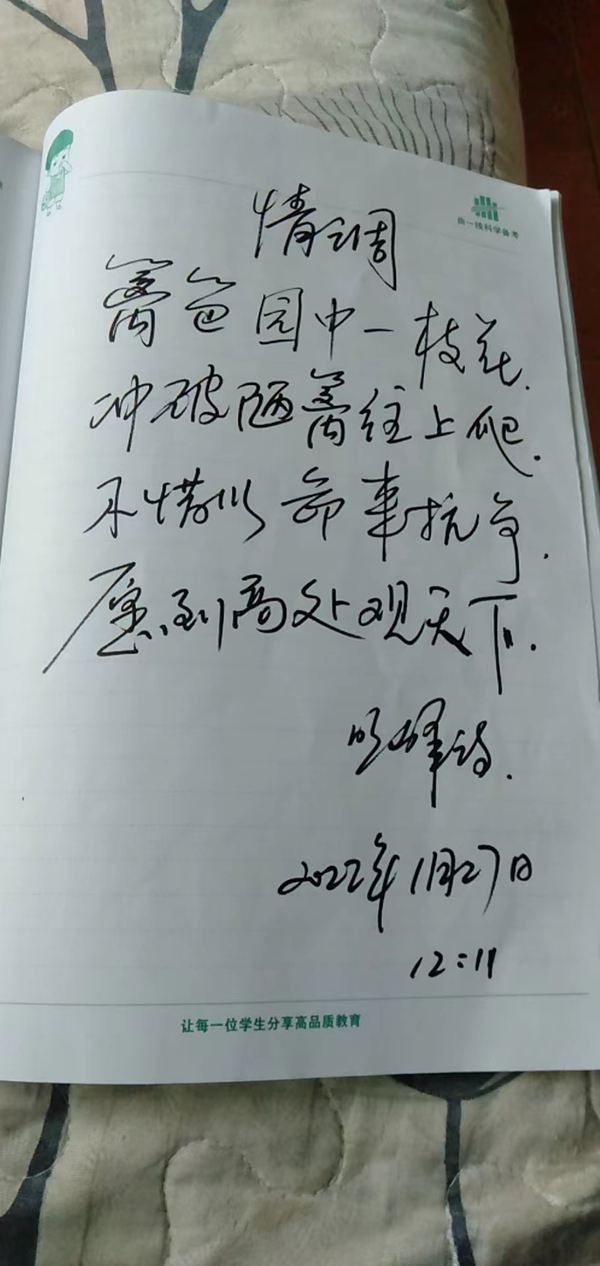 科学备考
情调
篱笆园中一枝花.
冲破陋篱往上爬.
不惜以命 抗争.
愿到高处观天下.
明 诗.
2022年1月27日
12:11
让每一位学生分享高品质教育